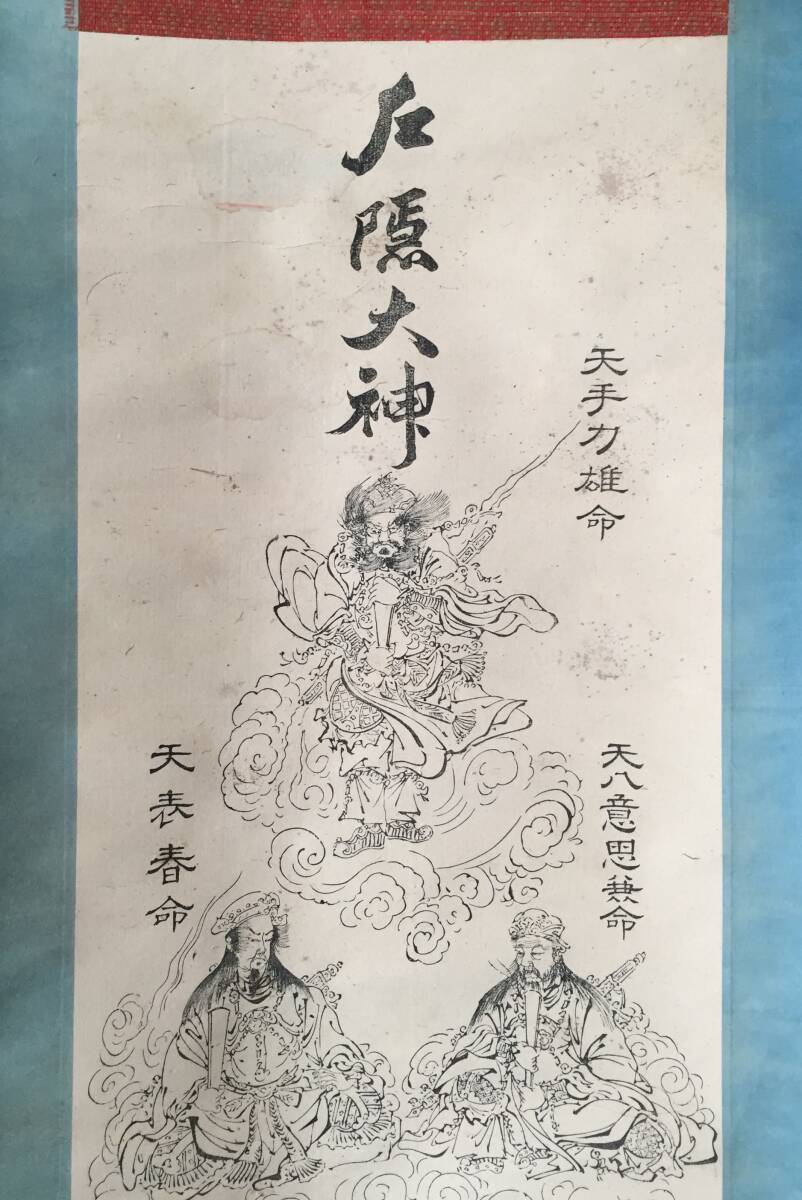 戸隠大神
天手力雄命
天八意思兼命
天表春命